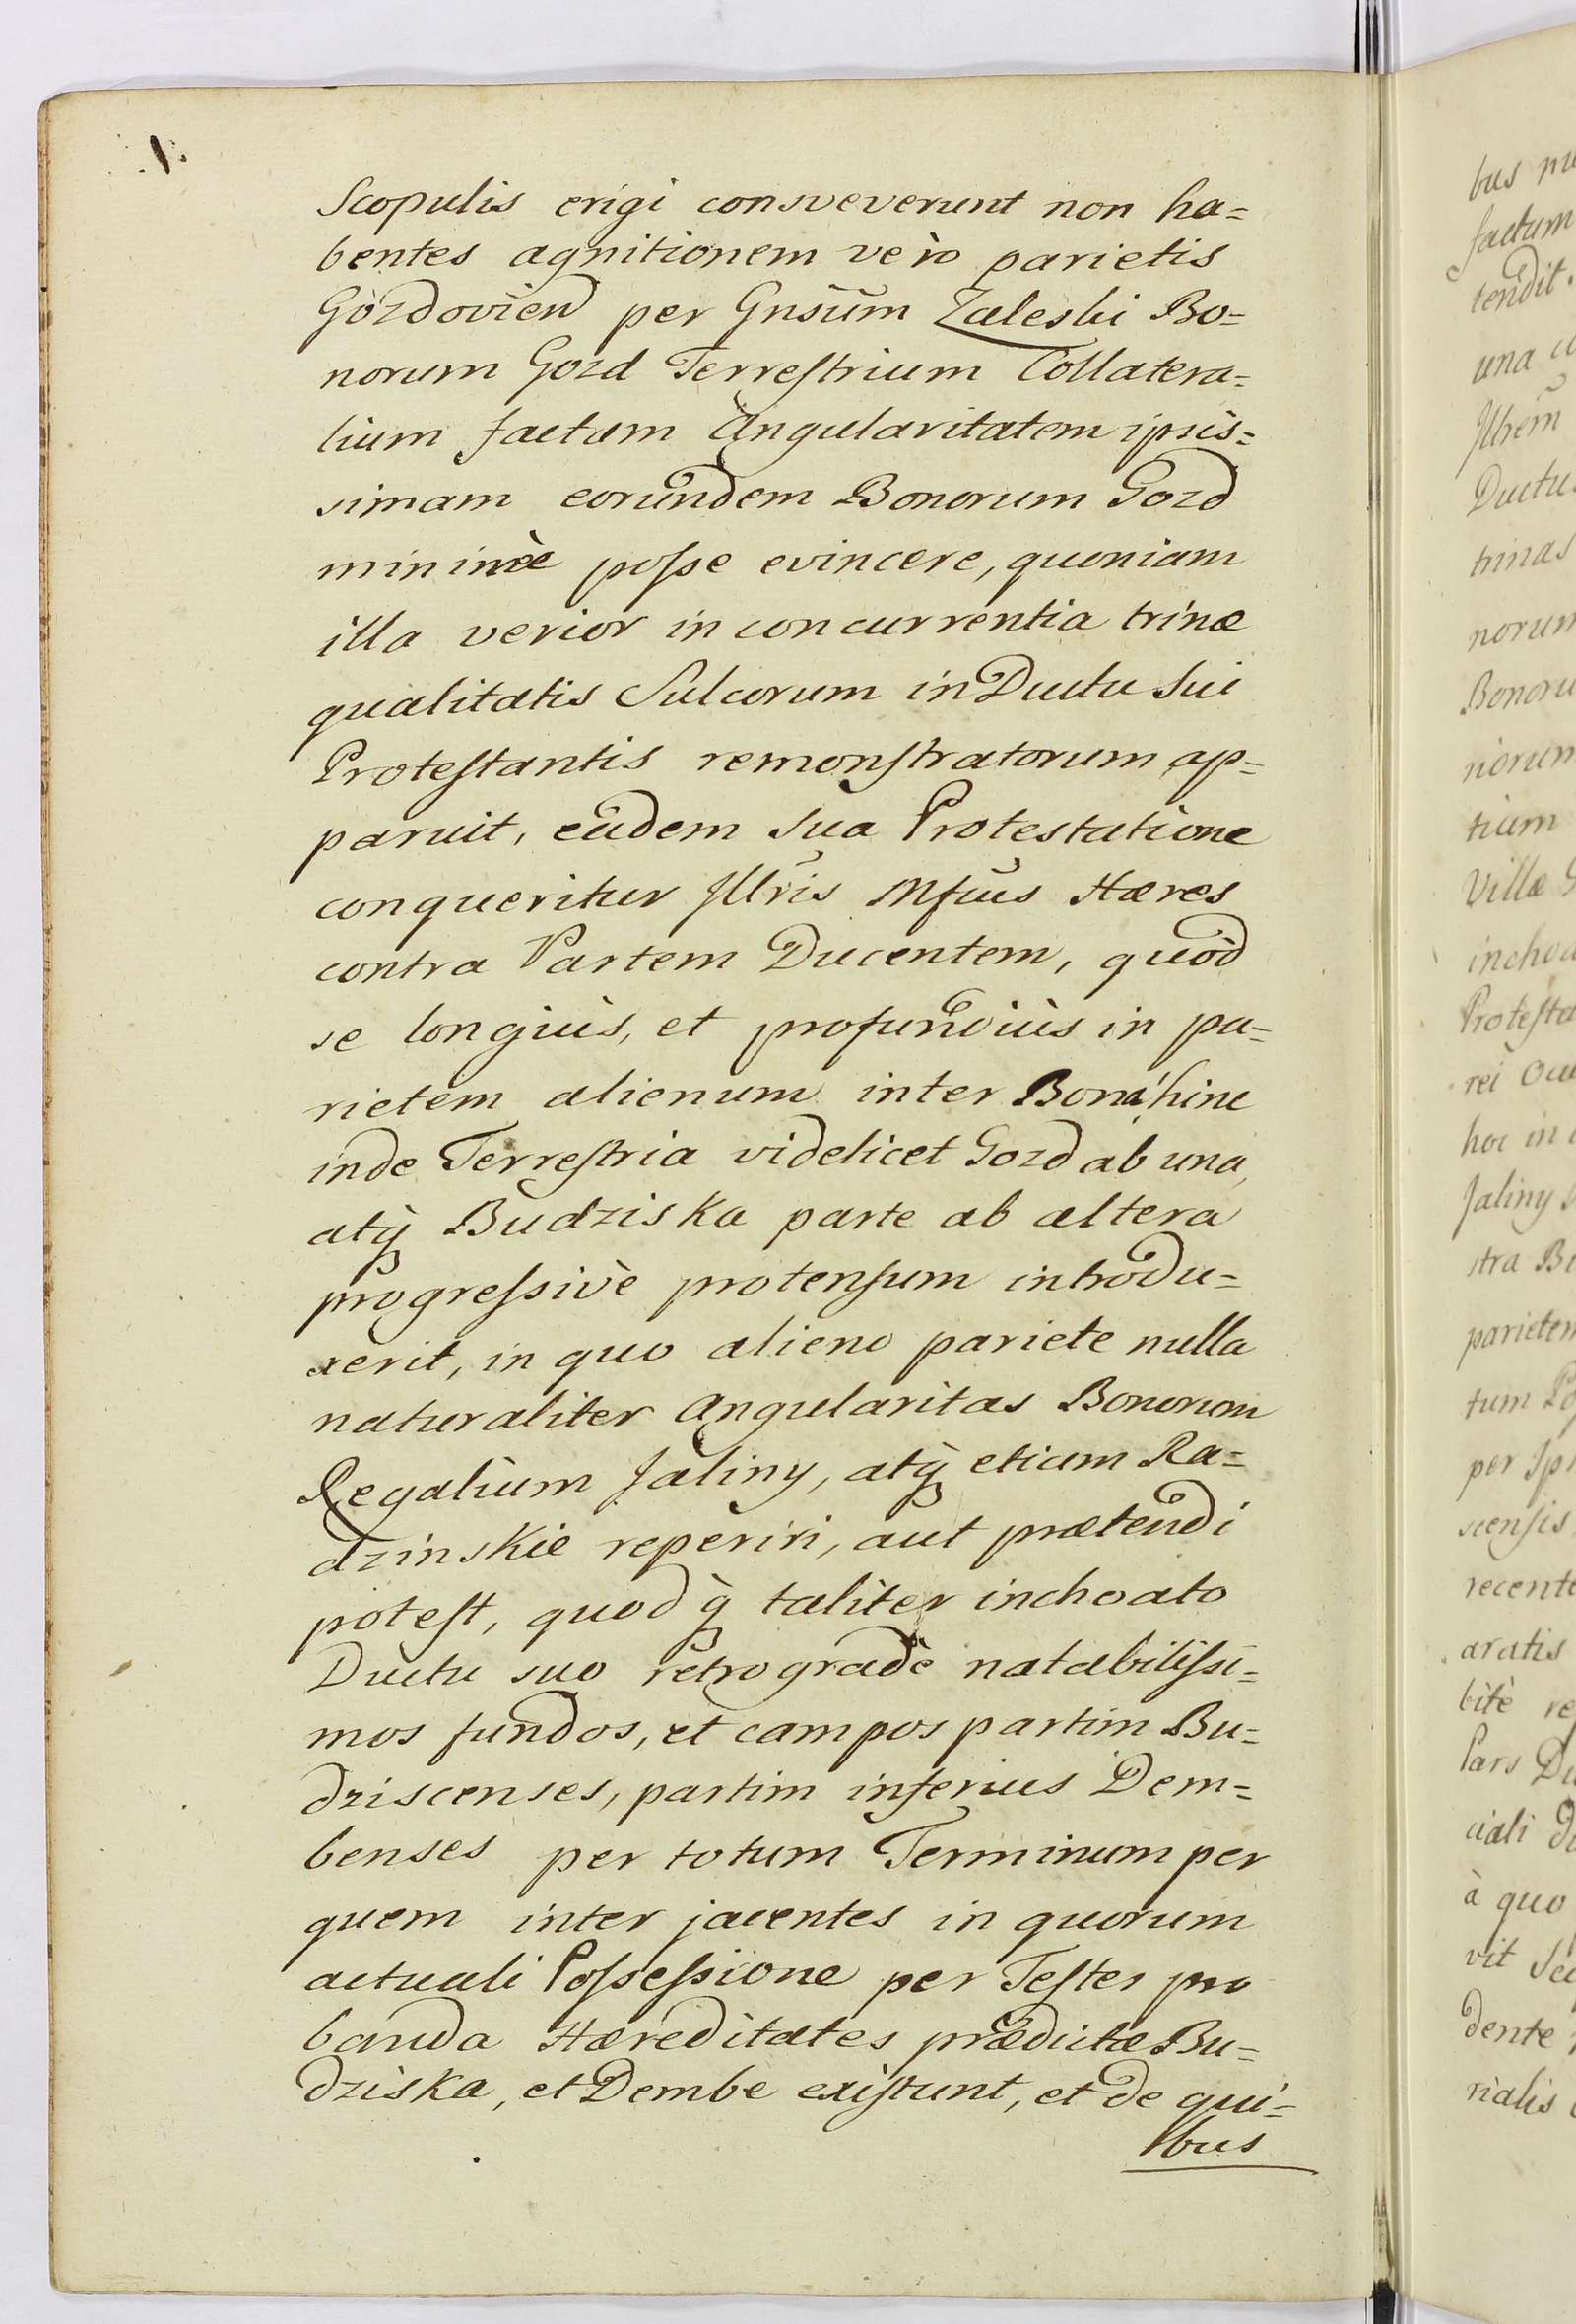 Scopulis erigi consveverunt non ha=
bentes agnitionem verò parietis
Gòzdovien per Gnsum Zaleski Bo=
norum Gozd Terrestrium Collatera=
lium factam Angularitatem ipsis=
simam eorundem Bonorum Gozd
mininèe posse evincere, quoniam
illa verior in concurrentia trinæ
qualitatis Sulcorum in Ductu sui
Protestantis remonstratorum ap=
paruit, eâdem sua Protestatione
conqueritur Jllris Mfcus Hæres
contra Partem Ducentem, quòd
se longiùs, et profundiùs in pa=
rietem alienum inter Bona hinc
inde Terrestria videlicet Gozd ab una,
atq̃ Budziska parte ab altera
progressivè protensum introdu=
xerit, in quo alieno pariete nulla
naturaliter Angularitas Bonorum
Regalium Jaliny, atq̃ etiam Ra=
dzinskie reperiri, aut prætendi
potest, quod q̃ taliter inchoato
Ductu suo retrogradè natabilissi=
mos fundos, et campos partim Bu=
dziscenses, partim inferius Dem=
benses per totum Terminum per
quem inter jacentes in quorum
actuali Possessione per Testes pro
banda Hæreditates prædictæ Bu=
dziska, et Dembe existunt, et de qui=
bus
bus
factum
tendit.
una
Jllrem
Ductu
trinas
norum
Bonoru
niorum
tium
Villæ G
inchoa
Protesta
rei Ocu
hoc in
Jaliny
stra Bu
parietem
tum Po
per Jps
scensis
recente
aratis
bitè re
Pars Du
ciali
à quo
vit
dente
rialis